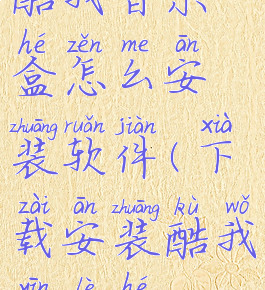 酷我音乐
hé zěn me ān
盒怎么安
zhuāng ruǎn jiàn xià
装软件(下
zài ān zhuāng kù wǒ
载安装酷我
yīn lè hé